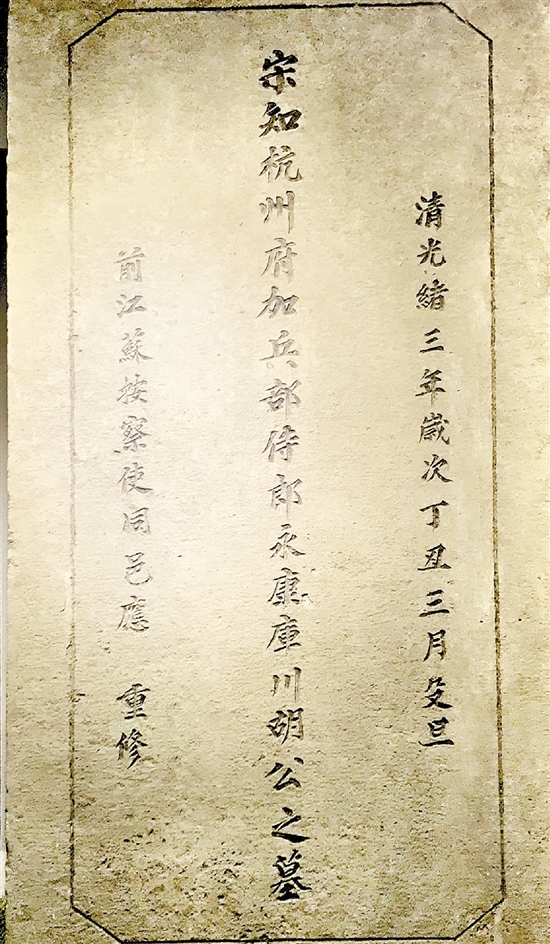 清光緒三年歲次丁丑三月穀旦
宋知杭州府加兵部侍郎永康庫川胡公之墓
前江蘇按察使同邑應 重修